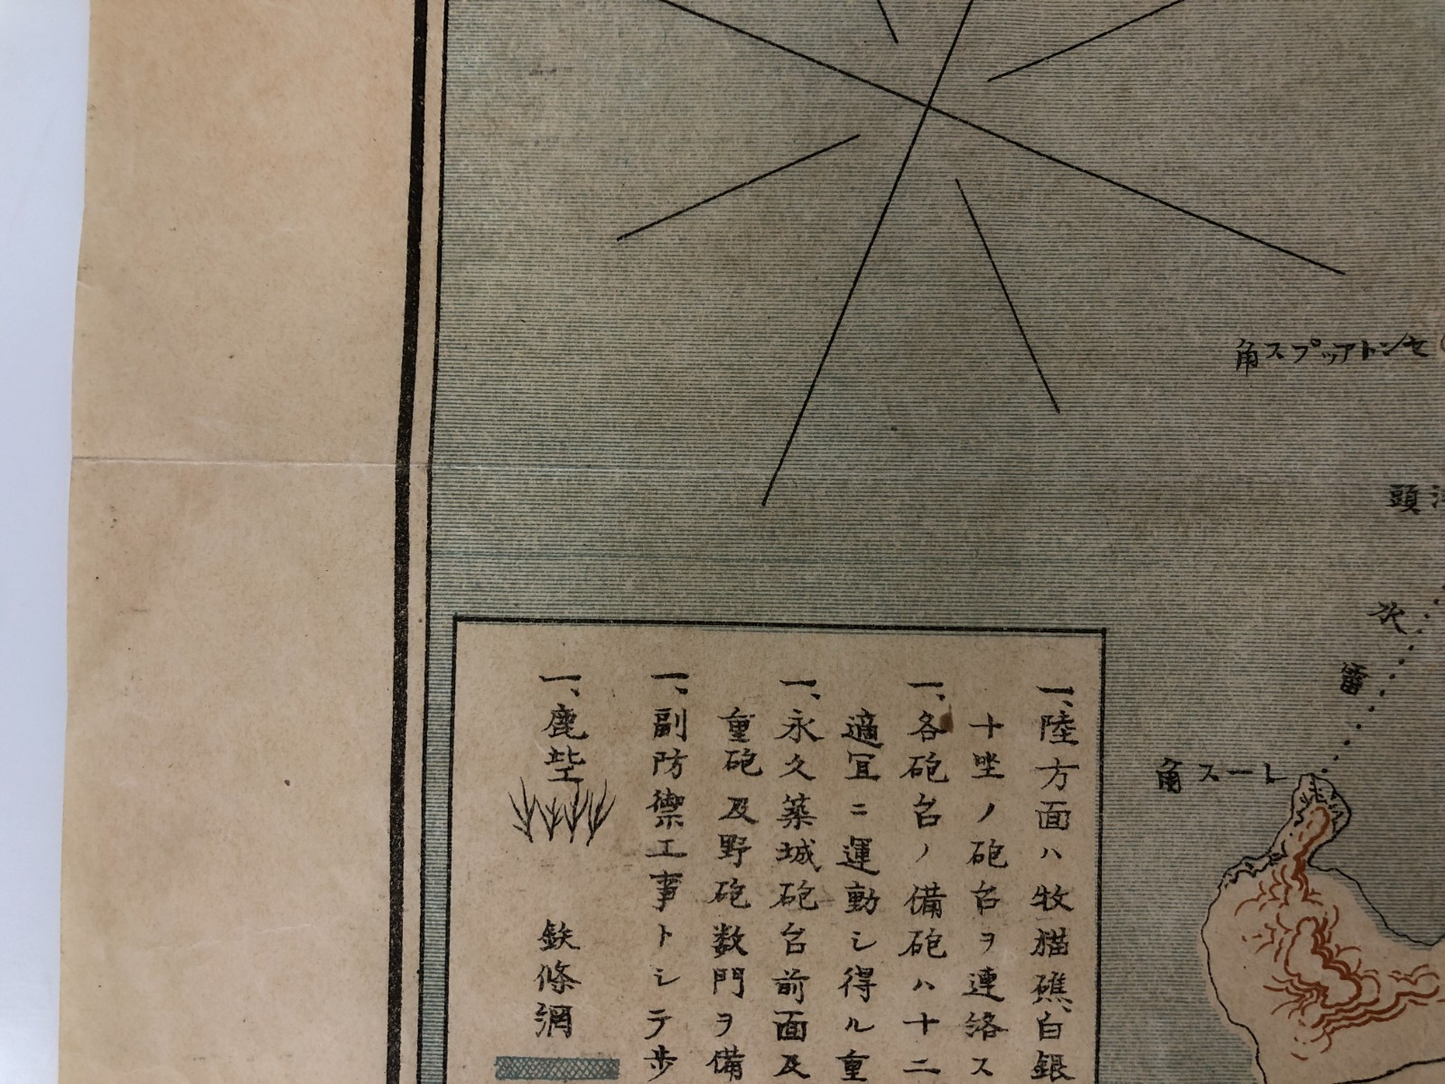 角スプップアトンセ
頭
次
雷
角スール
一、陸方面ハ牧猫礁、白銀
十坐ノ砲台ヲ連絡ス
一、各砲台ノ備砲ハ十二
適宜ニ運動シ得ル重
一、永久築城砲台前面及
重砲及野砲数門ヲ備
一、副防禦工事トシテ歩
一、鹿埜
鉄條網